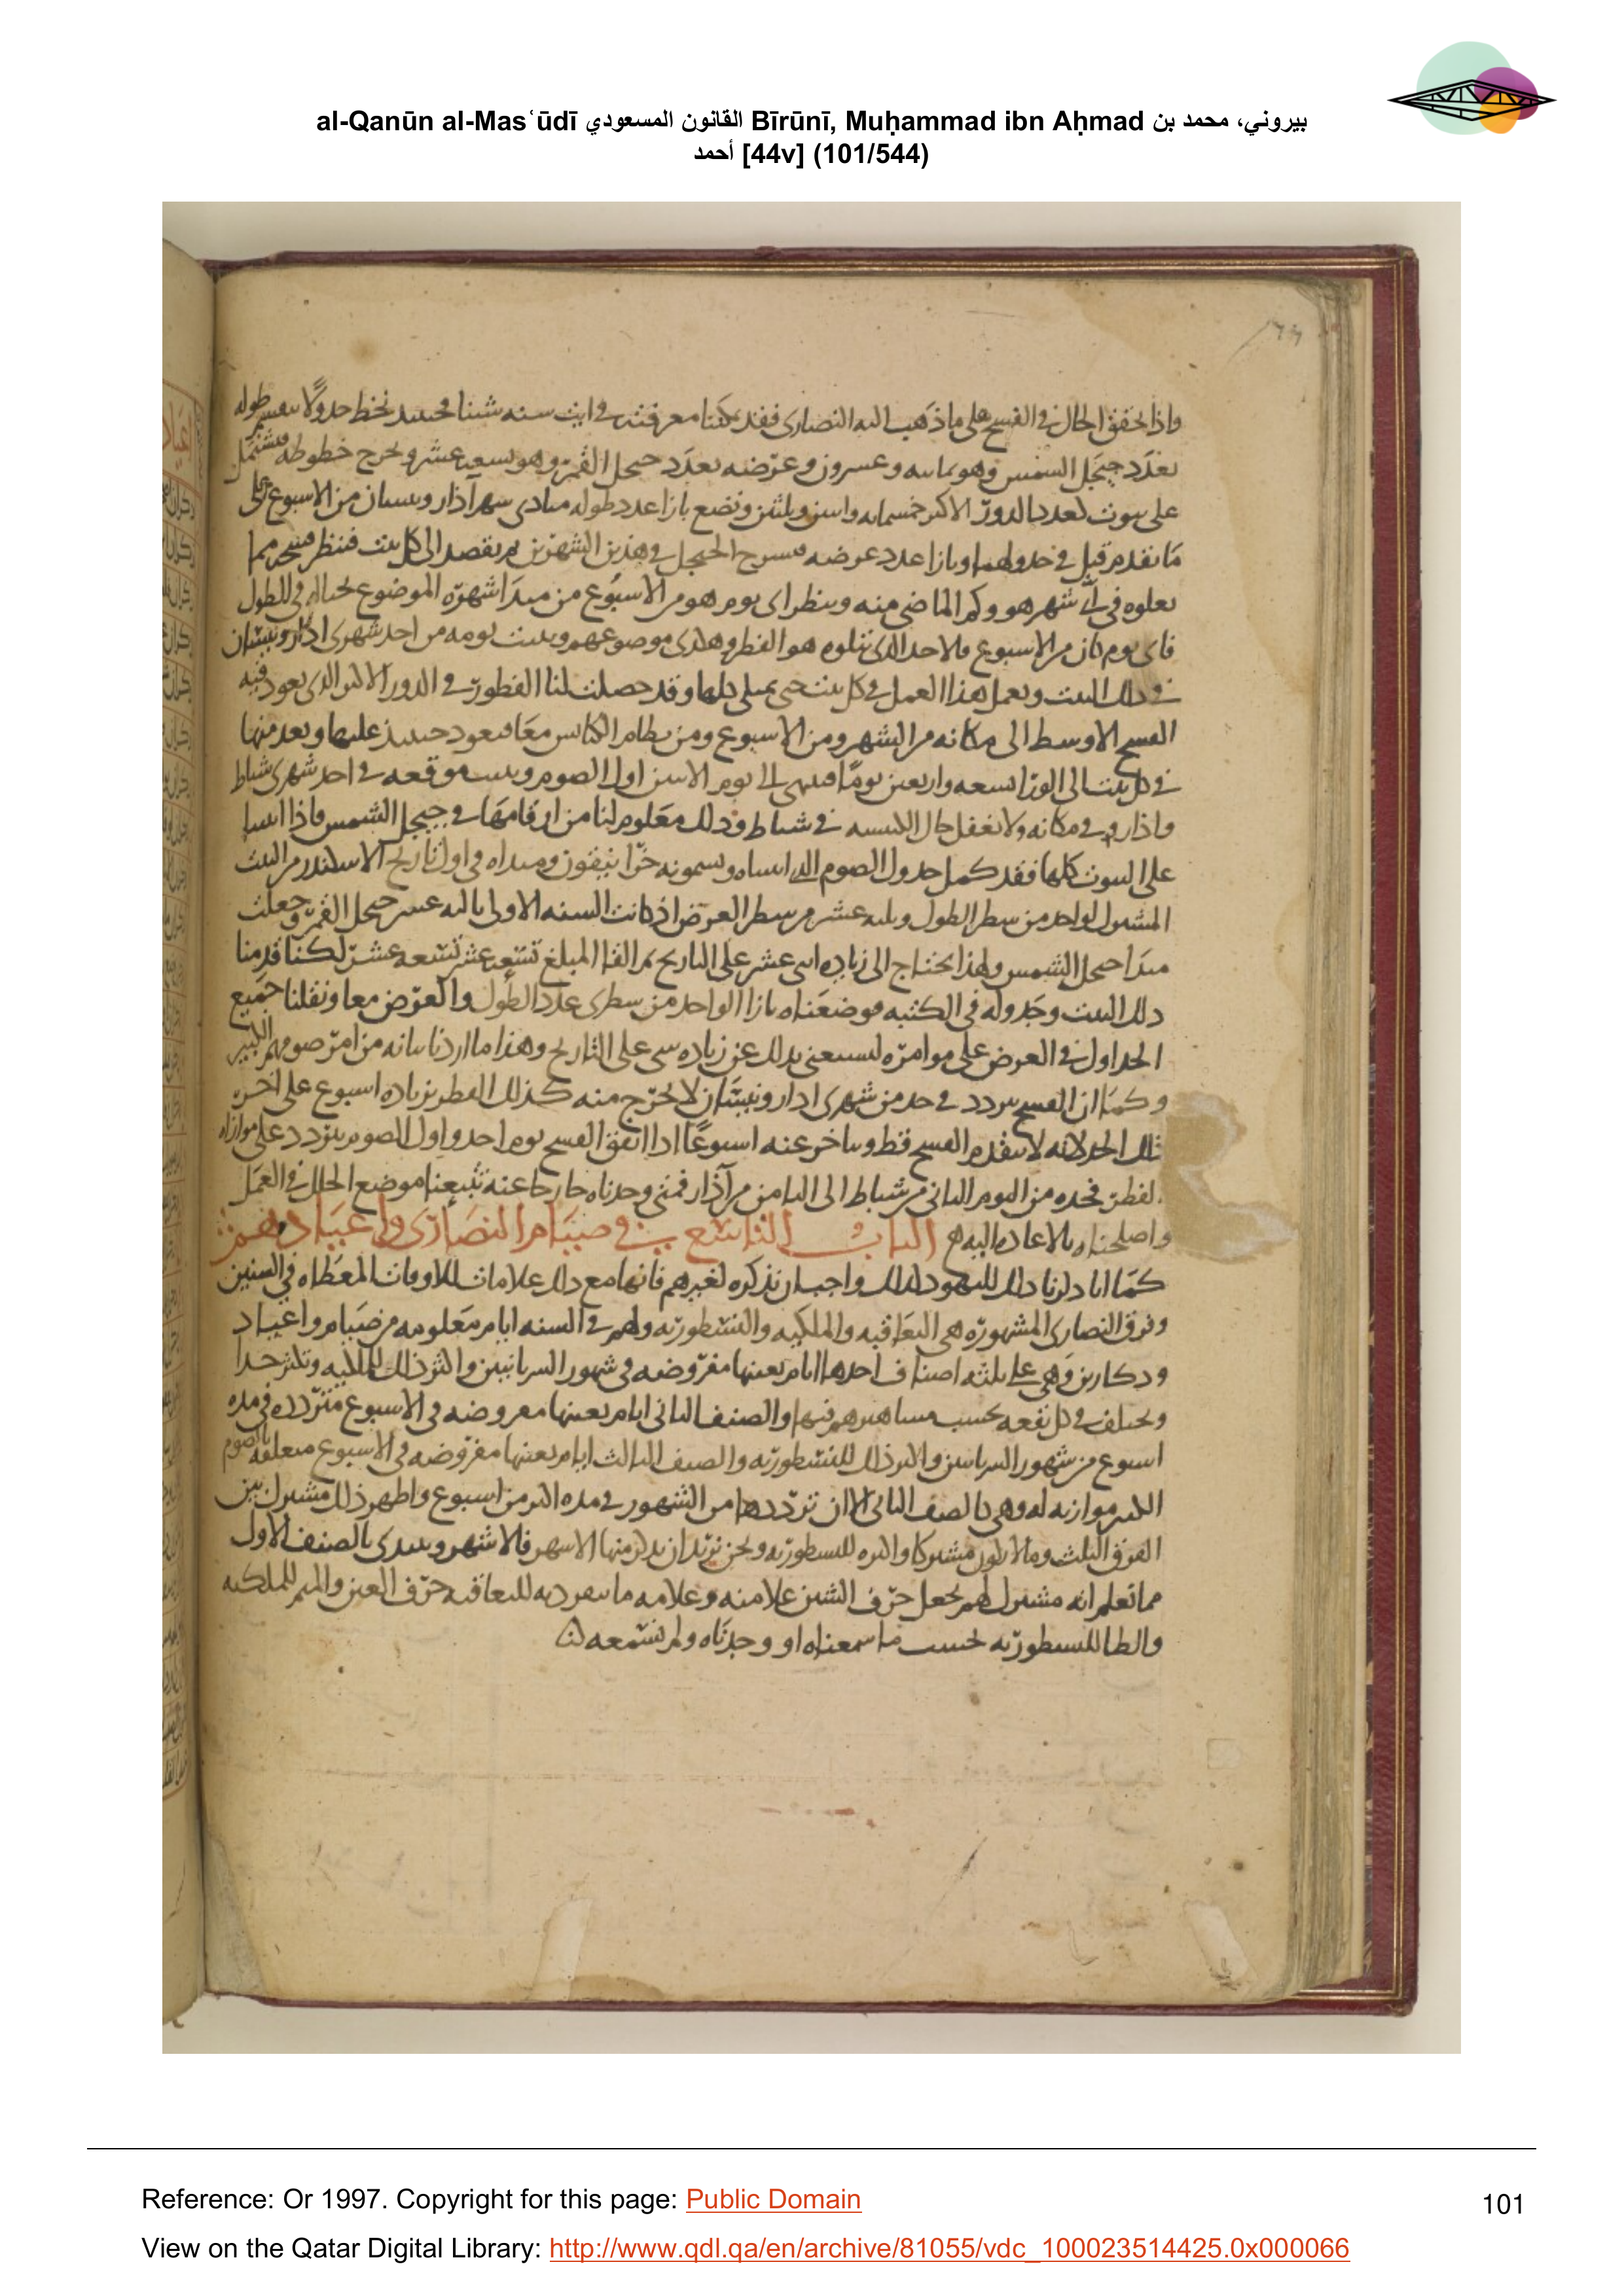 al-Qanūn al-Masʿūdī القانون المسعودي Bīrūnī, Muḥammad ibn Aḥmad بيروني، محمد بن
أحمد [44v] (101/544)
واذا تحقق الحال في الفسح على ما ذهب اليه النصارى فقد يمكننا معرفته في اية سنه شينا فحينيد نخط جدولا ينقسم طوله
بعدد جيجل الشمس وهو ثمانيه وعشرون وعرضه بعدد جيجل القمر وهو تسعه عشر ونخرج خطوطه فيشتمل
على بيوت بعدد الدور الاكبر خمسمايه واثنين وثلثين ونضع بازا عدد طوله مبادي شهر اذار ونيسان من الاسبوع على
ما تقدم قبل في جدولهما وبازا عدد عرضه فسوح الجيجل في هذين الشهرين ثم نقصد الى كل بيت فننظر فسحه مما
يعلوه في اي شهر هو وكم الماضي منه وينظر اي يوم هو من الاسبوع من مبدا شهره الموضوع بحياله في الطول
فاي يوم كان من الاسبوع فالاحد الذي يتلوه هو الفطر وهذا موضوعهم ويثبت يومه من احد شهري اذار ونيسان
في ذلك البيت ويعمل هذا العمل في كل بيت حتى يمتلي كلها وقد حصلت لنا الفطور في الدور الاكبر الذي يعود فيه
الفسح الاوسط الى مكانه من الشهر ومن الاسبوع ومن نظام الكبايس معا فنعود حينيذ عليها ويعد منها
في كل بيت الى الورا تسعه واربعين يوما فينتهي الى يوم الاثنين اول الصوم ويثبت موقعه في احد شهري شباط
واذار في مكانه ولا نغفل حال الكبيسه في شباط وذلك معلوم لنا من ارقامها في جيجل الشمس فاذا اتينا
على البيوت كلها فقد كمل جدول الصوم الذي اثبتناه
المشترك لواحد من سطر الطول وثلثه عشر من سطر العرض اذ كانت السنه الاولى ثالثه عشر جيجل القمر وجعلت
مبدا جيجل الشمس ولهذا يحتاج الى زياده اثنى عشر على التاريخ ثم القا المبلغ تسعه عشر تسعه عشر لكنا قدمنا
ذلك البيت وجدوله في الكتبه فوضعناه بازا الواحد من سطري عدد الطول والعرض معا ونقلنا جميع
الجداول في العرض على موامره ليستغنى بذلك عن زياده شي على التاريخ وهذا ما اردنا بيانه من امر صومهم الكبير
وكما ان الفسح يتردد في حد من شهري اذار ونيسان لا يخرج منه كذلك الفطر بزياده اسبوع على اخر
ذلك الحد لانه لا يتقدم الفسح قط ويتاخر عنه اسبوعا اذا اتفق الفسح يوم احد واول الصوم يتردد على موازاه
الفطر فحده من اليوم الثاني من شباط الى الثامن من آذار فمتى وجدناه خارجا عنه تتبعنا موضع الخلل في العمل
واصلحناه بالاعاده اليه الباب التاسع في صيام النصارى واعيادهم
كما انا ذكرنا ذلك لليهود كذلك واجب ان نذكره لغيرهم فانها مع ذلك علامات للاوقات المعطاه في السنين
وفرق النصارى المشهوره هي اليعاقبه والملكيه والنسطوريه ولهم في السنه ايام معلومه من صيام واعياد
وذكارين وهي على ثلثه اصناف احدها ايام بعينها مفروضه في شهور السريانيين واكثر ذلك للملكيه وتكثر جدا
ويختلف في كل بقعه بحسب مشاهيرهم فيها والصنف الثاني ايام بعينها مفروضه في الاسبوع متردده في مده
اسبوع من شهور السريانيين واكثر ذلك للنسطوريه والصنف الثالث ايام بعينها مفروضه في الاسبوع متعلقه بالصوم
الكبير موازيه له وهي كالصنف الثاني الا ان ترددها من الشهور في مده اكثر من اسبوع واظهر ذلك مشترك بين
الفرق الثلث وما لا يكون مشتركا واكثره للنسطوريه ونحن نريد ان نذكر منها الاشهر فالاشهر ونبتدي بالصنف الاول
مما نعلم انه مشترك لهم نجعل حرف الشين علامته وعلامه ما ينفرد به لليعاقبه حرف العين والميم للملكيه
والطا للنسطوريه بحسب ما سمعناه او وجدناه ولم نسمعه
Reference: Or 1997. Copyright for this page: Public Domain
101
View on the Qatar Digital Library: http://www.qdl.qa/en/archive/81055/vdc_100023514425.0x000066